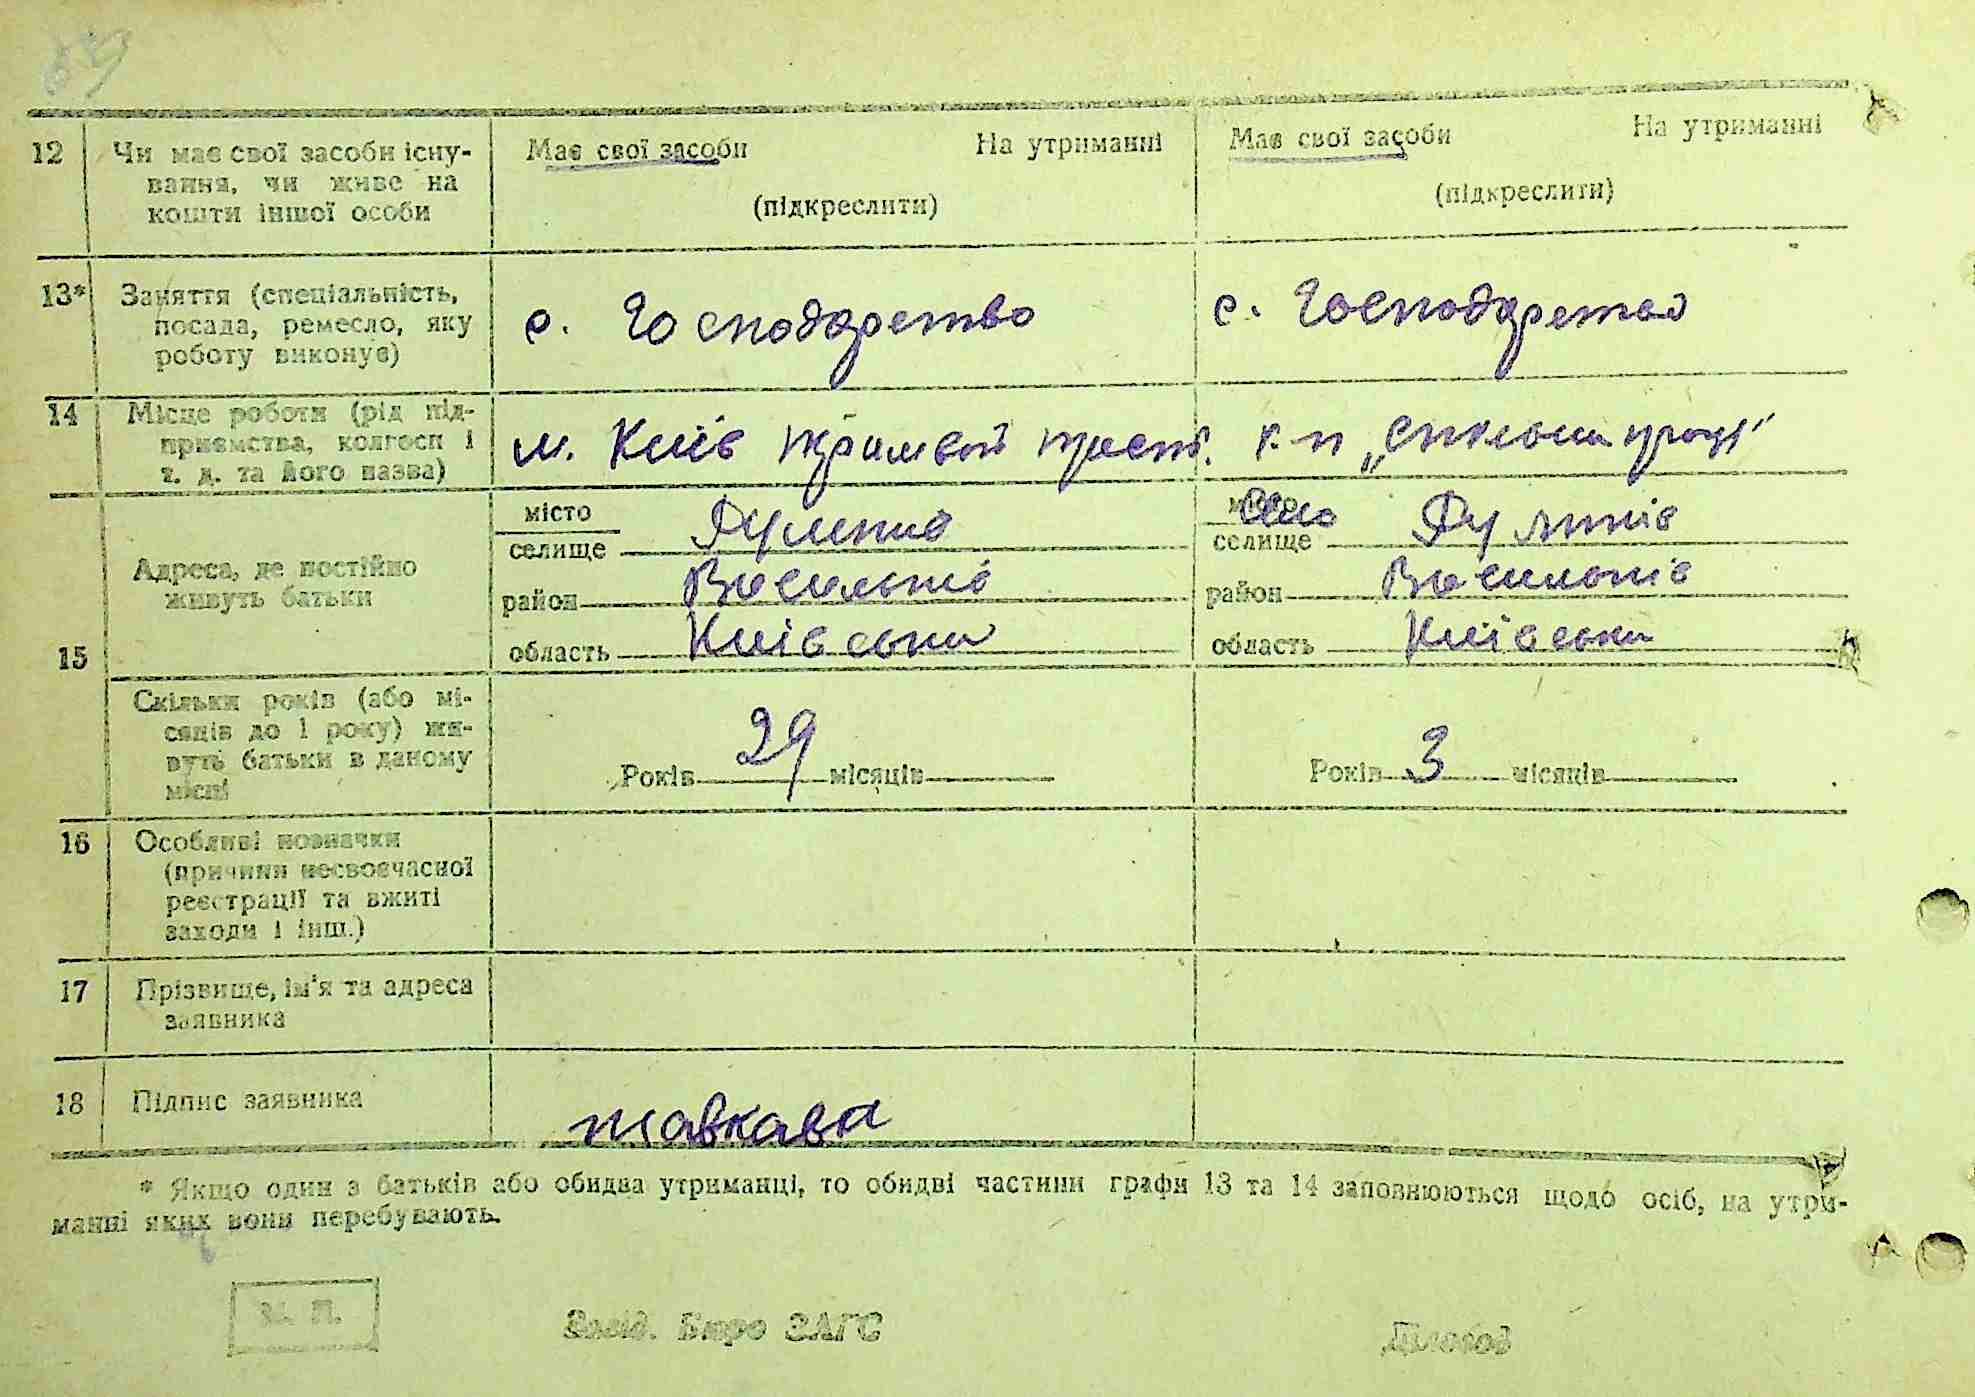 12 Чи має свої засоби існу-
вання, чи живе на
кошти іншої особи
Має свої засоби На утриманні
(підкреслити)
Має свої засоби На утриманні
(підкреслити)
13* Заняття (спеціальність,
посада, ремесло, яку
роботу виконує)
с. господарство
с. господарство
14 Місце роботи (рід під-
приємства, колгосп і
т. д. та його назва)
м. Київ трамвай трест.
к-п „Спільна праця"
15
Адреса, де постійно
живуть батьки
місто
селище
район Васильків
область Київська
село
селище
район Васильків
область Київська
Скільки років (або мі-
сяців до 1 року) жи-
вуть батьки в даному
місці
Років 29 місяців
Років 3 місяців
16 Особливі позначки
(причини несвоєчасної
реєстрації та вжиті
заходи і інш.)
17 Прізвище, ім'я та адреса
заявника
18 Підпис заявника
* Якщо один з батьків або обидва утриманці, то обидві частини графи 13 та 14 заповнюються щодо осіб, на утри-
манні яких вони перебувають.
М. П.
Завід. Бюро ЗАГС
Діловод